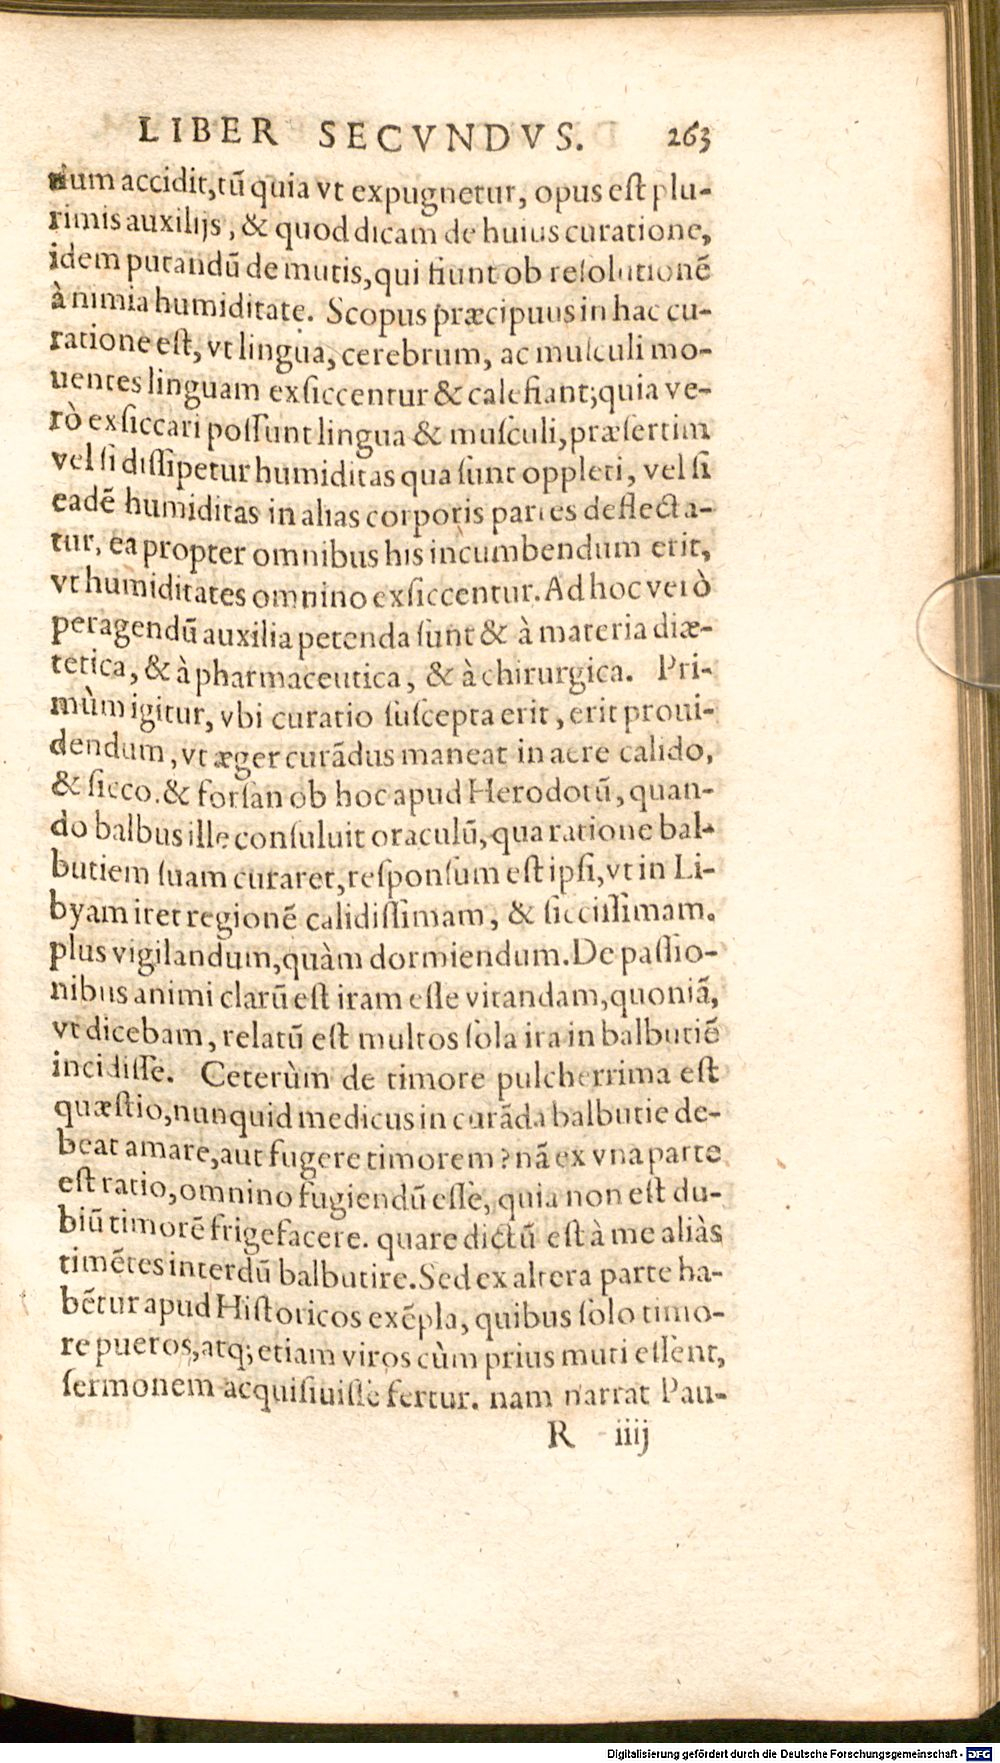 LIBER SECVNDVS. 263
rium accidit, tū quia vt expugnetur, opus est plu-
rimis auxilijs, & quod dicam de huius curatione,
idem putandū de mutis, qui fiunt ob resolutionē
à nimia humiditate. Scopus præcipuus in hac cu-
ratione est, vt lingua, cerebrum, ac musculi mo-
uentes linguam exsiccentur & calefiant; quia ve-
rò exsiccari possunt lingua & musculi, præsertim
vel si dissipetur humiditas qua sunt oppleti, vel si
eadē humiditas in alias corporis partes deflecta-
tur, ea propter omnibus his incumbendum erit,
vt humiditates omnino exsiccentur. Ad hoc verò
peragendū auxilia petenda sunt & à materia diæ-
tetica, & à pharmaceutica, & à chirurgica. Pri-
mùm igitur, vbi curatio suscepta erit, erit proui-
dendum, vt æger curādus maneat in aere calido,
& sicco. & forsan ob hoc apud Herodotū, quan-
do balbus ille consuluit oraculū, qua ratione bal-
butiem suam curaret, responsum est ipsi, vt in Li-
byam iret regionē calidissimam, & siccissimam.
plus vigilandum, quàm dormiendum. De passio-
nibus animi clarū est iram esse vitandam, quoniā,
vt dicebam, relatū est multos sola ira in balbutiē
incidisse. Ceterùm de timore pulcherrima est
quæstio, nunquid medicus in curāda balbutie de-
beat amare, aut fugere timorem? nā ex vna parte
est ratio, omnino fugiendū esse, quia non est du-
biū timorē frigefacere. quare dictū est à me aliàs
timētes interdū balbutire. Sed ex altera parte ha-
bētur apud Historicos exēpla, quibus solo timo-
re pueros, atq; etiam viros cùm prius muti essent,
sermonem acquisiuisse fertur. nam narrat Pau-
R iiij
Digitalisierung gefördert durch die Deutsche Forschungsgemeinschaft - DFG